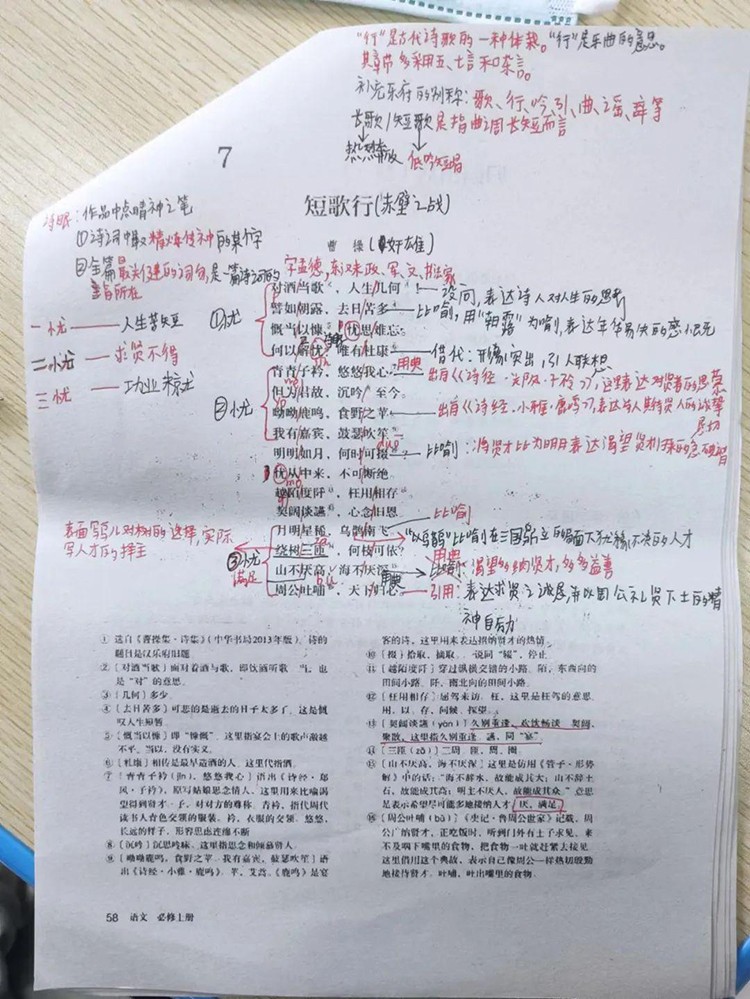 "行"是古代诗歌的一种体裁。"行"是乐曲的意思。
其章节多采用五、七言和杂言。
补充乐府的别称：歌、行、吟、引、曲、谣、辞等
长歌/短歌是指曲调长短而言
热烈奔放 低吟短唱
7
短歌行(赤壁之战)
曹操(奸雄)
字孟德，东汉末政、军、文、书法家
诗眼：作品中点睛神之笔
①诗词中最精炼传神的某个字
②全篇最关键的词句，是一篇诗词的
主旨所在
一忧——人生苦短
二忧——求贤不得
三忧——功业未就
①忧
对酒当歌，人生几何！——设问，表达诗人对人生的思考
譬如朝露，去日苦多。——比喻，用"朝露"为喻，表达年华易失的感慨
慨当以慷，忧思难忘。
何以解忧？唯有杜康。——借代：形象突出，引人联想
②忧
青青子衿，悠悠我心。用典 出自《诗经·郑风·子衿》，这里表达对贤者的思慕
但为君故，沉吟至今。
呦呦鹿鸣，食野之苹。出自《诗经·小雅·鹿鸣》，表达诗人期待贤人的
我有嘉宾，鼓瑟吹笙。
明明如月，何时可掇？比喻：将贤才比为明月表达渴望贤才
忧从中来，不可断绝。
越陌度阡，枉用相存。
契阔谈䜩，心念旧恩。
③忧
月明星稀，乌鹊南飞。比喻
绕树三匝，何枝可依？"以乌鹊"比喻在三国鼎立的局面下犹豫不决的人才
表面写鸟儿对树的选择，实际
写人才的择主
满足
山不厌高，海不厌深。用典 比喻：渴望多纳贤才，多多益善
周公吐哺，天下归心。引用：表达求贤之诚是并以周公礼贤下士的精
神自励
① 选自《曹操集·诗集》（中华书局2013年版）。诗的
题目是汉乐府旧题。
②〔对酒当歌〕面对着酒与歌，即饮酒听歌。当，也
是"对"的意思。
③〔几何〕多少。
④〔去日苦多〕可悲的是逝去的日子太多了。这是慨
叹人生短暂。
⑤〔慨当以慷〕即"慷慨"。这里指宴会上的歌声激越
不平。当以，没有实义。
⑥〔杜康〕相传是最早造酒的人，这里代指酒。
⑦〔青青子衿（jīn），悠悠我心〕语出《诗经·郑
风·子衿》，原写姑娘思念情人，这里用来比喻渴
望得到贤才。子，对对方的尊称。青衿，指代周代
读书人青色交领的服装。衿，衣服的交领。悠悠，
长远的样子，形容思虑连绵不断。
⑧〔沉吟〕沉思吟味。这里指思念和倾慕贤人。
⑨〔呦呦鹿鸣，食野之苹。我有嘉宾，鼓瑟吹笙〕语
出《诗经·小雅·鹿鸣》。苹，艾蒿。《鹿鸣》是宴
客的诗，这里用来表达招纳贤才的热情。
⑩〔掇〕拾取，摘取。一说同"辍"，停止。
⑪〔越陌度阡〕穿过纵横交错的小路。陌，东西向的
田间小路。阡，南北向的田间小路。
⑫〔枉用相存〕屈驾来访。枉，这里是枉驾的意思。
用，以。存，问候、探望。
⑬〔契阔谈䜩（yàn）〕久别重逢，欢饮畅谈。契阔，
聚散，这里指久别重逢。䜩，同"宴"。
⑭〔三匝（zā）〕三周。匝，周、圈。
⑮〔山不厌高，海不厌深〕这里是仿用《管子·形势
解》中的话："海不辞水，故能成其大；山不辞土
石，故能成其高；明主不厌人，故能成其众。"意思
是表示希望尽可能多地接纳人才。厌，满足。
⑯〔周公吐哺（bǔ）〕《史记·鲁周公世家》记载，周
公广纳贤才，正吃饭时，听到门外有士子求见，来
不及咽下嘴里的食物，把食物一吐就赶紧去接见。
这里借用这个典故，表示自己像周公一样热切殷勤
地接待贤才。吐哺，吐出嘴里的食物。
58 语文 必修上册